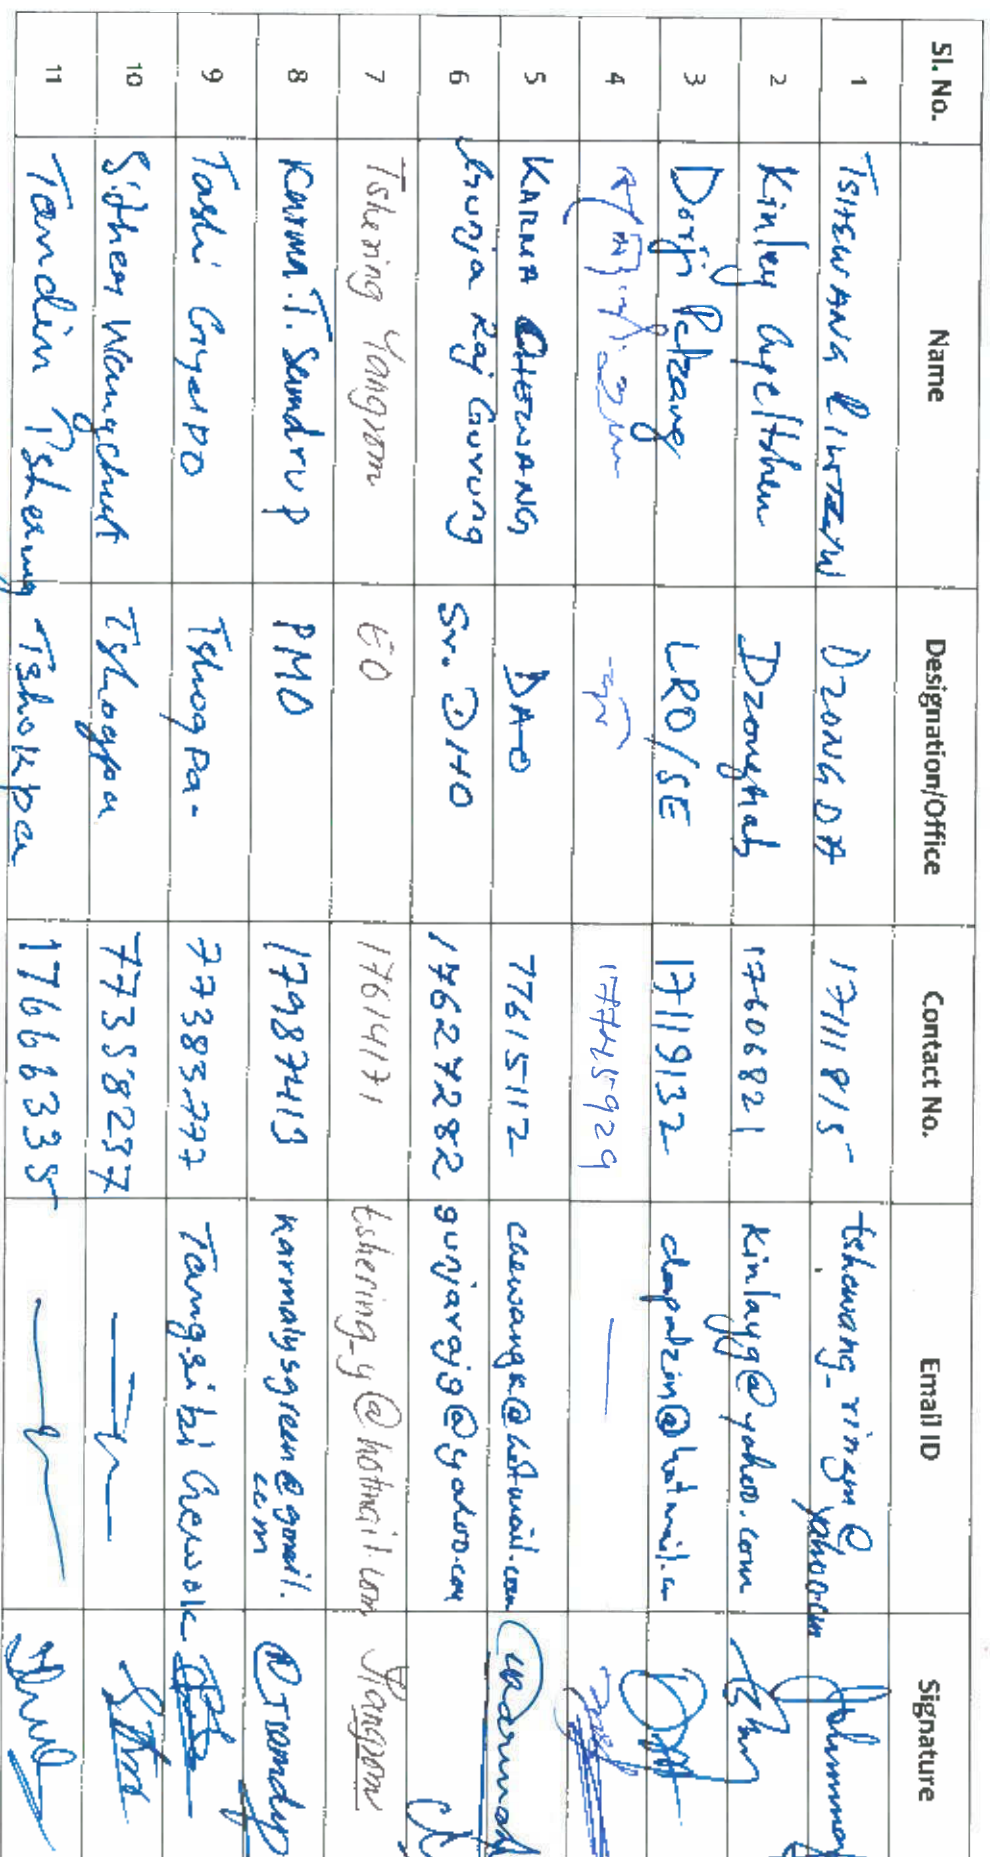 Sl. No. Name Designation/Office Contact No. Email ID Signature
1 TSHEWANG RINZIN DZONGDA 17111815 tshewang_rinzin@yahoo.com
2 Kinley Gyeltshen Dzongrab 17606821 kinlayg@yahoo.com
3 Dorji Pelzang LRO/SE 17119132 dapalzin@hotmail.c
4 17745929 —
5 KARMA CHEWANG DAO 77615112 chewangk@hotmail.com
6 Gunja Raj Gurung Sr. DHO 17627282 gunjargjg@yahoo.com
7 Tshering Yangzom EO 17614171 tshering_y@hotmail.com Yangzom
8 Karma T. Samdrup PMO 17987413 karmalysgreen@gmail.com
9 Tashi Gyelpo Tshogpa- 77383777 Tangsibi Gewok
10 Sither Wangchuk Tshogpa 77358237
11 Tandin Tshering Tshokpa 17666335